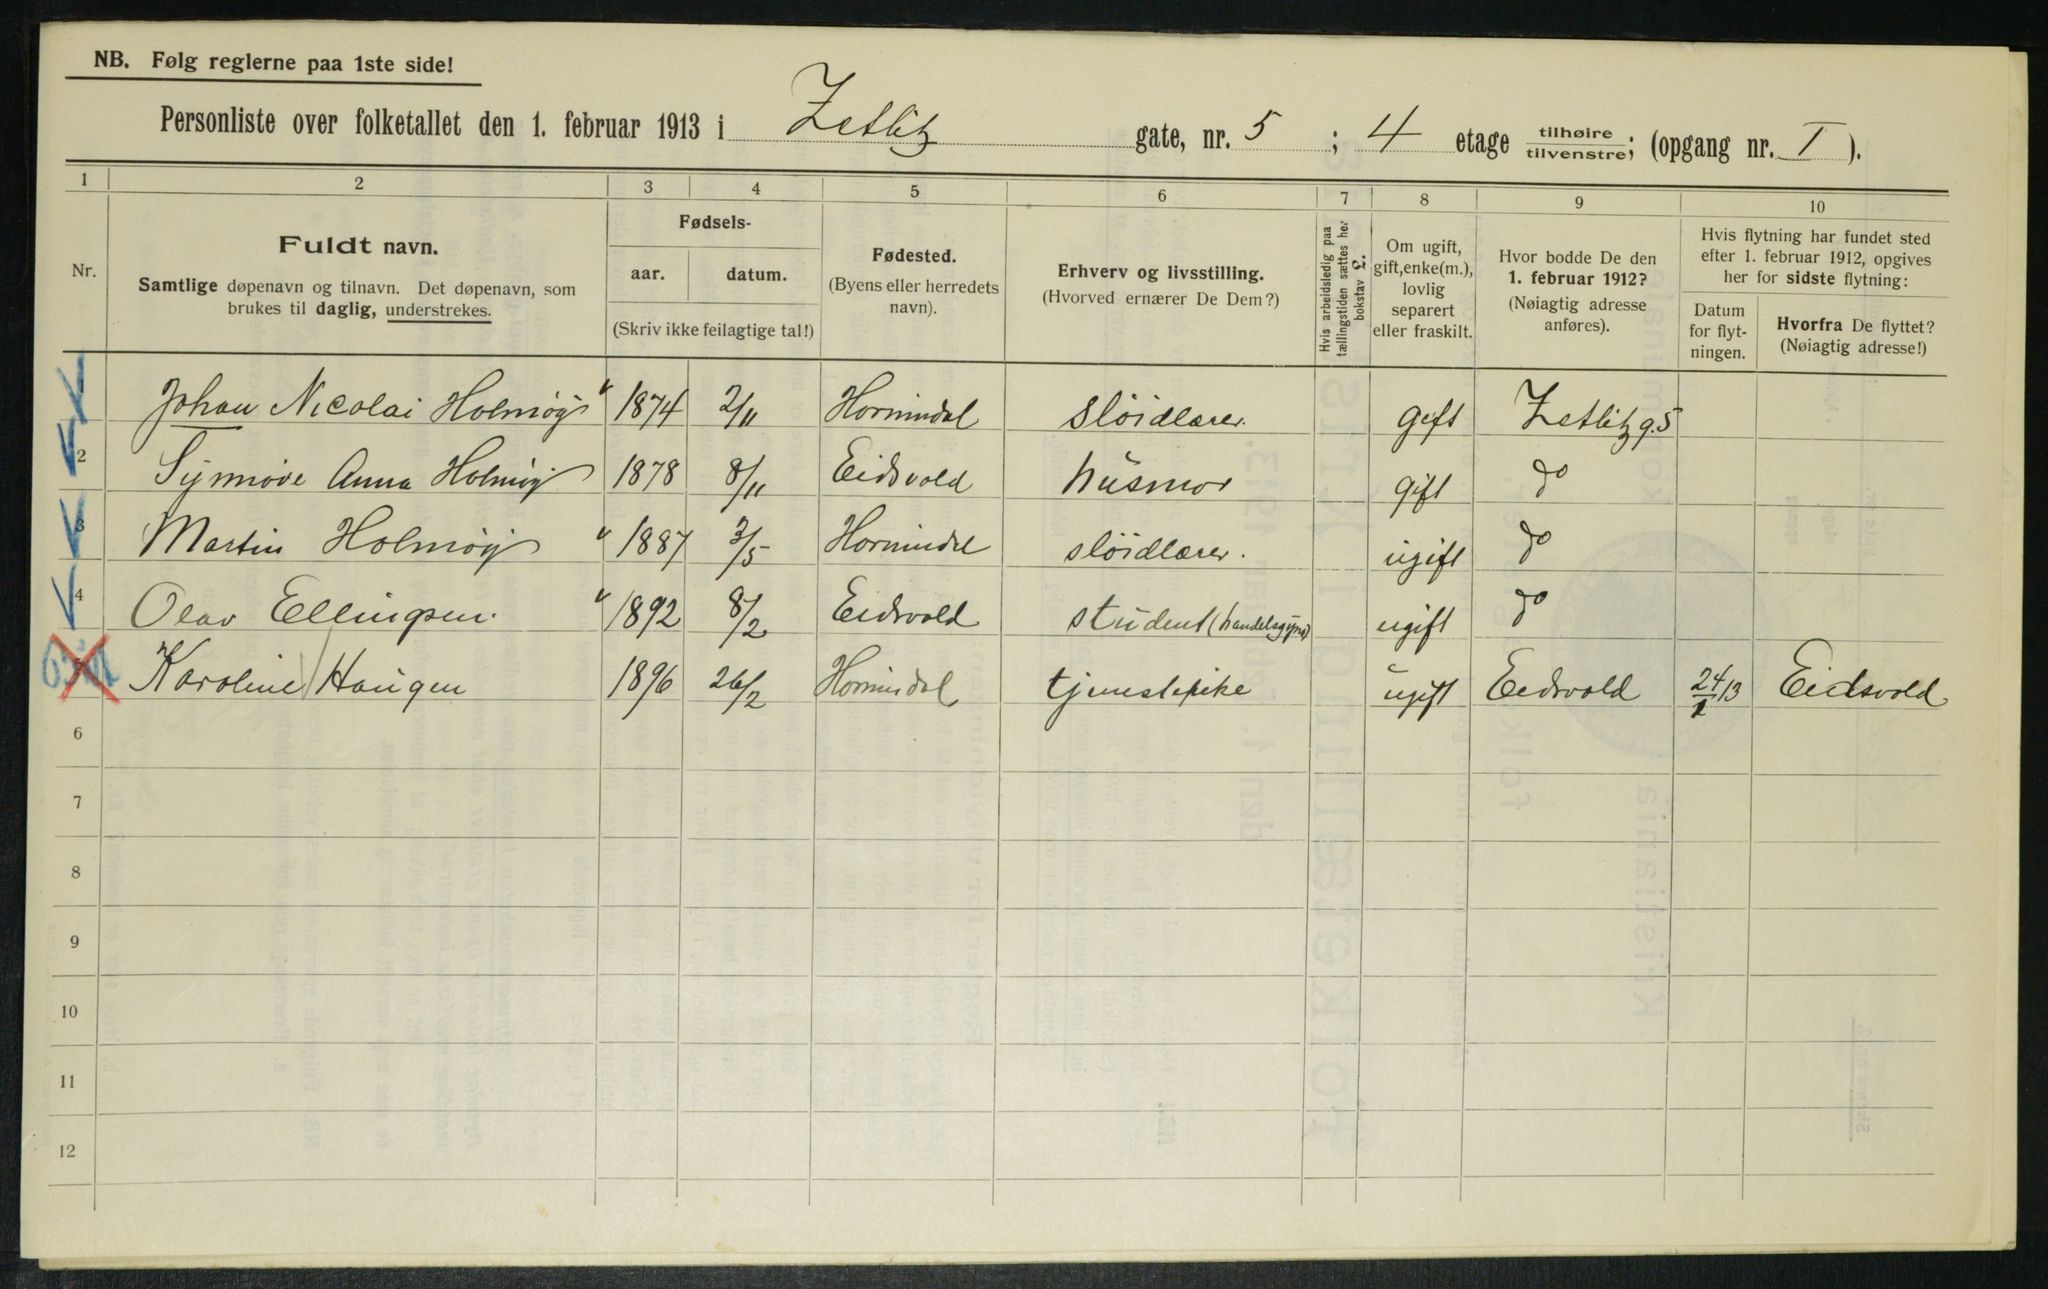 NB. Følg reglerne paa 1ste side!
Personliste over folketallet den 1. februar 1913 i Zetlitz gate, nr. 5 ; 4 etage tilhøire/tilvenstre; (opgang nr. I ).
1 2 3 4 5 6 7 8 9 10
Nr.
Fuldt navn.
Samtlige døpenavn og tilnavn. Det døpenavn, som
brukes til daglig, understrekes.
Fødsels-
aar. datum.
(Skriv ikke feilagtige tal!)
Fødested.
(Byens eller herredets
navn).
Erhverv og livsstilling.
(Hvorved ernærer De Dem?)
Hvis arbeidsledig paa
tællingstiden sættes her
bokstav L.
Om ugift,
gift, enke(m.),
lovlig
separert
eller fraskilt.
Hvor bodde De den
1. februar 1912?
(Nøiagtig adresse
anføres).
Hvis flytning har fundet sted
efter 1. februar 1912, opgives
her for sidste flytning:
Datum
for flyt-
ningen.
Hvorfra De flyttet?
(Nøiagtig adresse!)
1 Johan Nicolai Holmøy 1874 2/11 Hornindal sløidlærer. gift Zetlitz g. 5
2 Synnøve Anna Holmøy 1878 8/11 Eidsvold husmor gift do
3 Martin Holmøy 1887 3/5 Hornindal sløidlærer. ugift do
4 Olav Ellingsen. 1892 8/2 Eidsvold student (handelsgym) ugift do
5 Karoline Haugen 1896 26/2 Hornindal tjenestepike ugift Eidsvold 24/1 13 Eidsvold
6
7
8
9
10
11
12